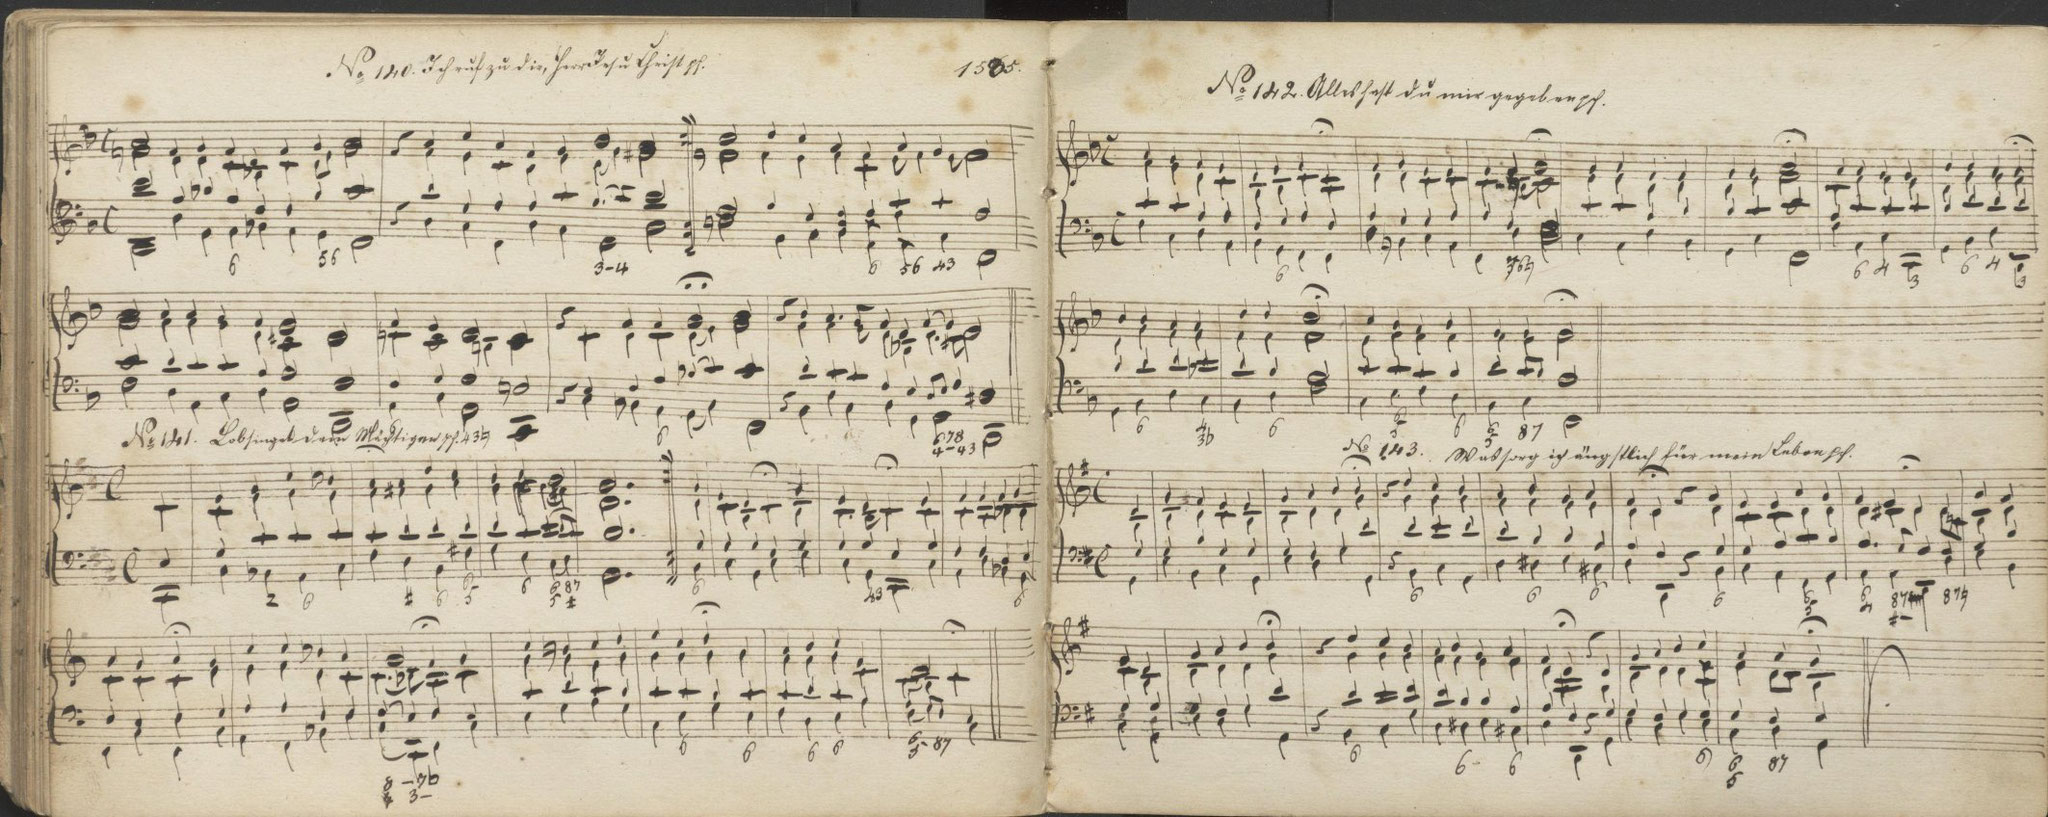 No 140. Ich ruf zu dir, Herr Jesu Christ pp. 1565.
6 56 3-4 6 56 43
6 678
4-43
No 141. Lobsinget dem Mächtigen pp. 43♮
2 6 # 6 6 6 6 87 6 43 6
5 5 #
6 6 6 6 6 87
5
8 - 7b
3-
No 142. Alles hast du mir gegeben pp.
6 6 4 6 4
3 3
6 4 6 6 6 87
3b 5
No 143. Was sorg ich ängstlich für mein Leben pp.
6 6 6 6 6 6 87 87♮
5 4 #-
6 6- 6 6 6 87
5